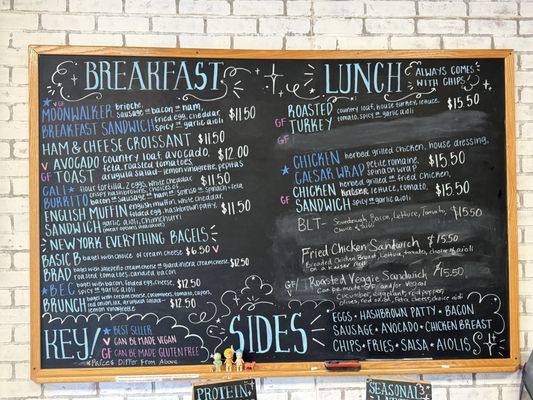 BREAKFAST
★ GF MOONWALKER BREAKFAST SANDWICH brioche, sausage or bacon or ham, fried egg, cheddar, spicy or garlic aioli $11.50
HAM & CHEESE CROISSANT $11.50
V GF AVOCADO TOAST country loaf, avocado, feta, roasted tomatoes, arugula salad - lemon vinaigrette, pepitas $12.00
CALI ★ BURRITO flour tortilla, 2 eggs, white cheddar, crispy hashbrowns, choice of bacon or sausage or ham or salsa or spinach + feta $11.50
ENGLISH MUFFIN SANDWICH english muffin, white cheddar, folded egg, hashbrown patty, garlic aioli, chimichurri $11.50
(meat options available)
★ NEW YORK EVERYTHING BAGELS
BASIC B bagel with choice of cream cheese $6.50 V
BRAD bagel with jalapeño cream cheese or garlic herb cream cheese, roasted tomatoes, candied bacon $12.50
★ BEC bagel with bacon, folded egg, cheese $12.50
BRUNCH bagel with cream cheese, cucumbers, capers, red onion, lox, arugula salad - lemon vinaigrette $12.50
KEY/
★ BEST SELLER
V CAN BE MADE VEGAN
GF CAN BE MADE GLUTEN FREE
*PRICES DIFFER FROM ABOVE
LUNCH
ALWAYS COMES WITH CHIPS
GF ROASTED TURKEY country loaf, house turkey, lettuce, tomato, spicy or garlic aioli $15.50
GF
★ CHICKEN CAESAR WRAP herbed grilled chicken, house dressing, petite romaine, spinach wrap $15.50
GF CHICKEN SANDWICH herbed grilled chicken, lettuce, tomato, spicy or garlic aioli $15.50
BLT - Sourdough, Bacon, Lettuce, Tomato, Choice of aioli $15.50
Fried Chicken Sandwich $15.50
Breaded Chicken Breast, Lettuce, tomato, choice of aioli on a Kaiser
GF V Roasted Veggie Sandwich $15.50
Can be made GF and/or Vegan
Cucumber, eggplant, red pepper, olives, red onion, feta, cheese, choice aioli
SIDES
EGGS • HASHBROWN PATTY • BACON
SAUSAGE • AVOCADO • CHICKEN BREAST
CHIPS • FRIES • SALSA • AIOLIS
PROTEIN
SEASONAL